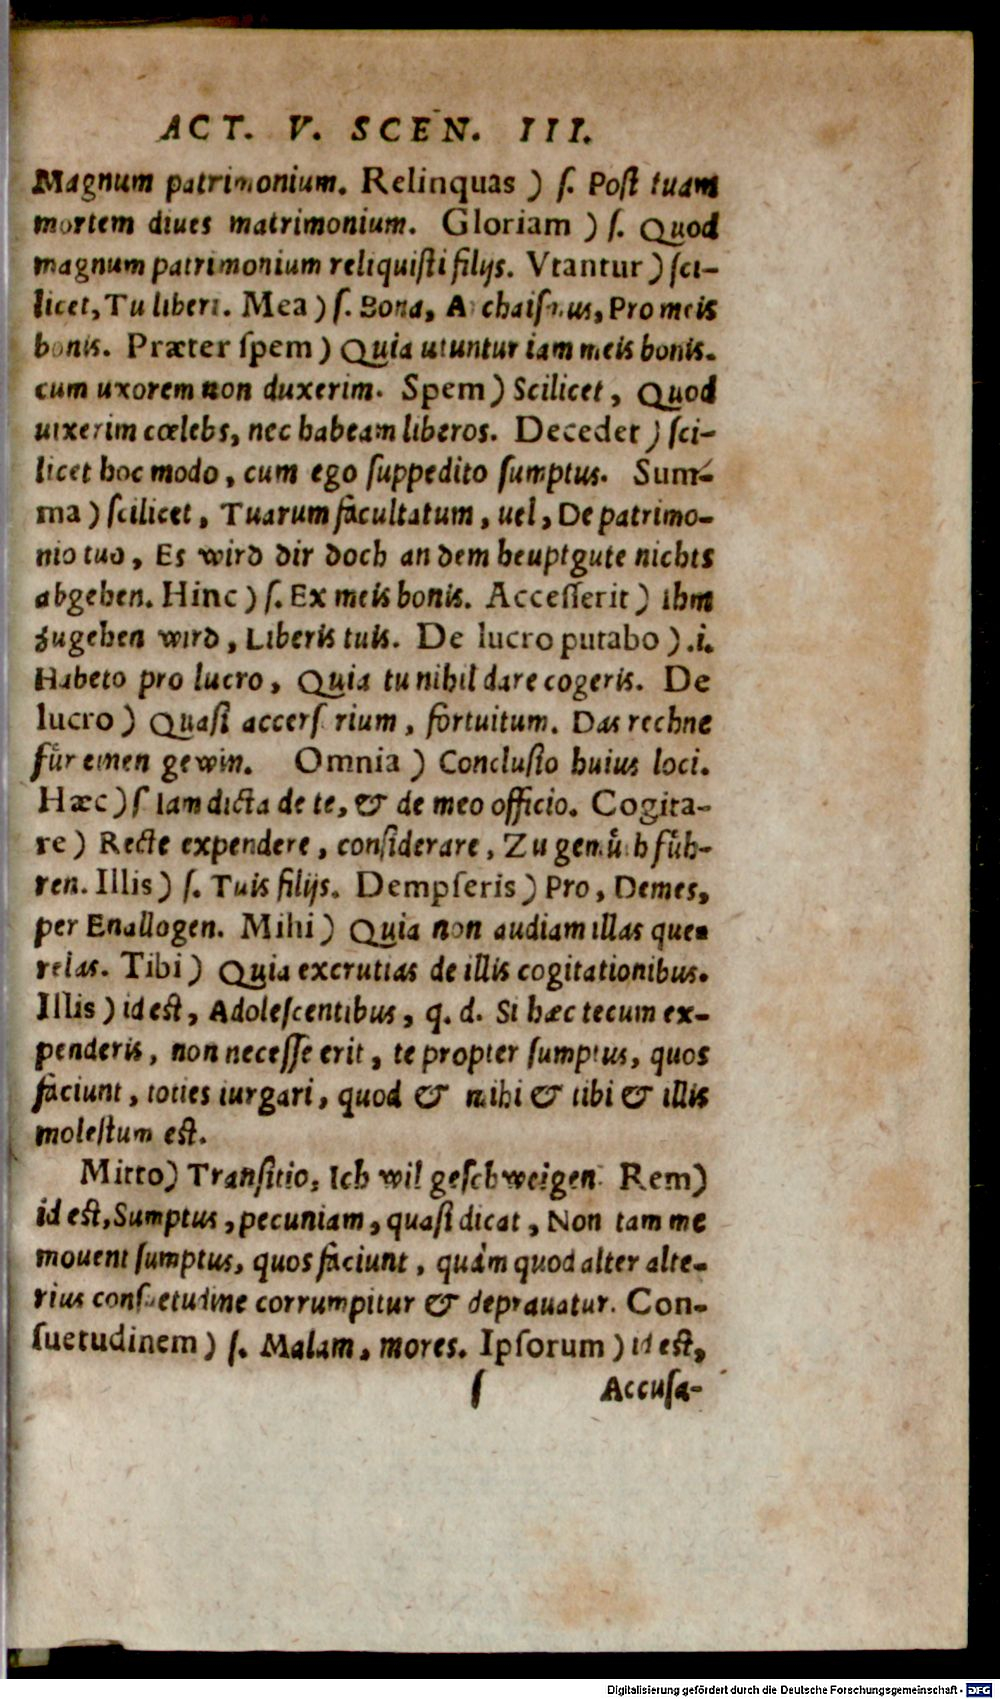 ACT. V. SCEN. III.
Magnum patrimonium. Relinquas ) ſ. Poſt tuam
mortem diues matrimonium. Gloriam ) ſ. Quod
magnum patrimonium reliquiſti filijs. Vtantur ) ſci-
licet, Tu liberi. Mea ) ſ. Bona, Archaiſmus, Pro meis
bonis. Præter ſpem ) Quia utuntur iam meis bonis.
cum uxorem non duxerim. Spem ) Scilicet, Quod
uixerim cœlebs, nec habeam liberos. Decedet ) ſci-
licet hoc modo, cum ego ſuppedito ſumptus. Sum-
ma ) ſcilicet, Tuarum facultatum, uel, De patrimo-
nio tuo, Es wird dir doch an dem heuptgute nichts
abgehen. Hinc ) ſ. Ex meis bonis. Acceſſerit ) ihm
zugehen wird, Liberis tuis. De lucro putabo ) .i.
Habeto pro lucro, Quia tu nihil dare cogeris. De
lucro ) Quaſi accerſorium, fortuitum. Das rechne
für einen gewin. Omnia ) Concluſio huius loci.
Hæc ) ſ Iam dicta de te, & de meo officio. Cogita-
re ) Recte expendere, conſiderare, Zu gemüth füh-
ren. Illis ) ſ. Tuis filijs. Dempſeris ) Pro, Demes,
per Enallogen. Mihi ) Quia non audiam illas que-
relas. Tibi ) Quia excrutias de illis cogitationibus.
Illis ) id eſt, Adoleſcentibus, q. d. Si hæc tecum ex-
penderis, non neceſſe erit, te propter ſumptus, quos
faciunt, toties iurgari, quod & mihi & tibi & illis
moleſtum eſt.
Mitto) Tranſitio, Ich wil geſchweigen. Rem)
id eſt, Sumptus, pecuniam, quaſi dicat, Non tam me
mouent ſumptus, quos faciunt, quàm quod alter alte-
rius conſuetudine corrumpitur & deprauatur. Con-
ſuetudinem ) ſ. Malam, mores. Ipſorum ) id eſt,
ſ Accuſa-
Digitalisierung gefördert durch die Deutsche Forschungsgemeinschaft - DFG